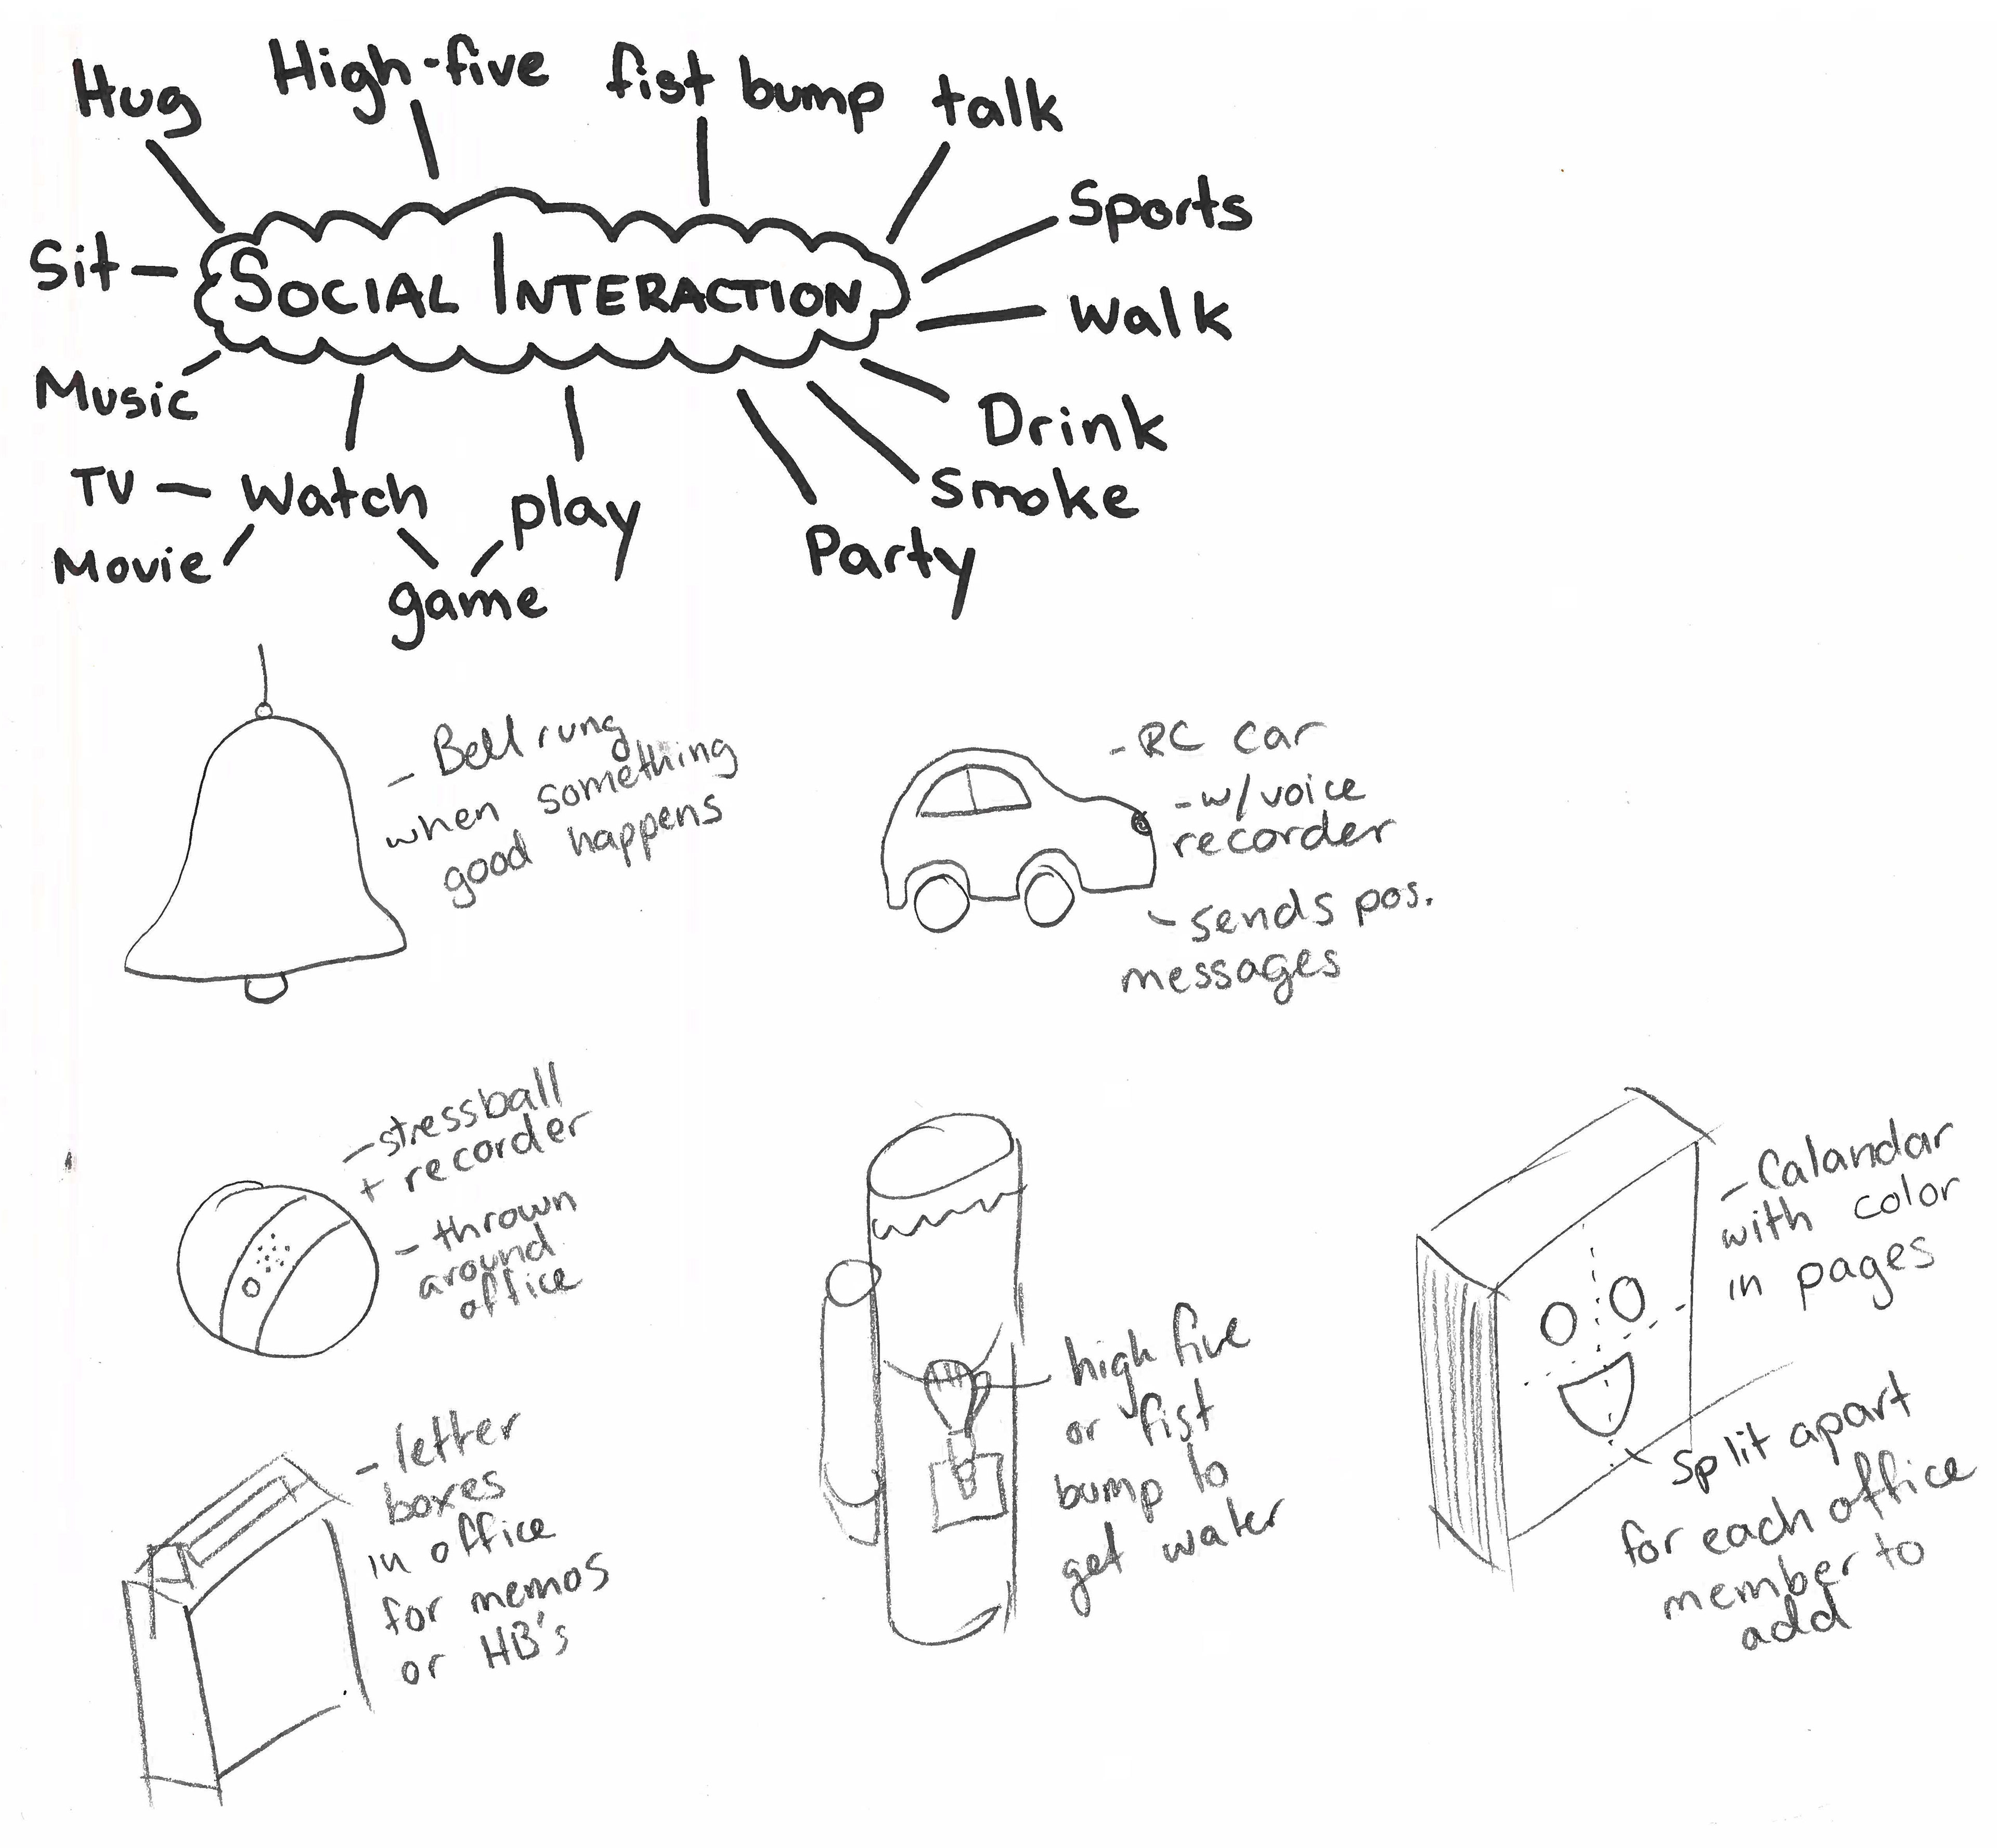 Hug
High-five
fist bump
talk
Sports
Sit
SOCIAL INTERACTION
Walk
Music
Drink
TV
Watch
play
Smoke
Movie
game
Party
- Bell rung
when something
good happens
- RC car
- w/voice
recorder
- sends pos.
messages
- stressball
+ recorder
- thrown
around
office
high five
or fist
bump to
get water
- Calandar
with color
in pages
Split apart
for each office
member to
add
- letter
boxes
in office
for memos
or HB's